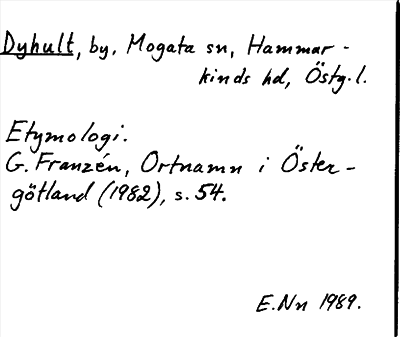 Dyhult, by. Mogata sn, Hammar-
kinds hd, Östg. l.
Etymologi.
G. Franzén, Ortnamn i Öster-
götland (1982), s. 54.
E.Nn 1989.